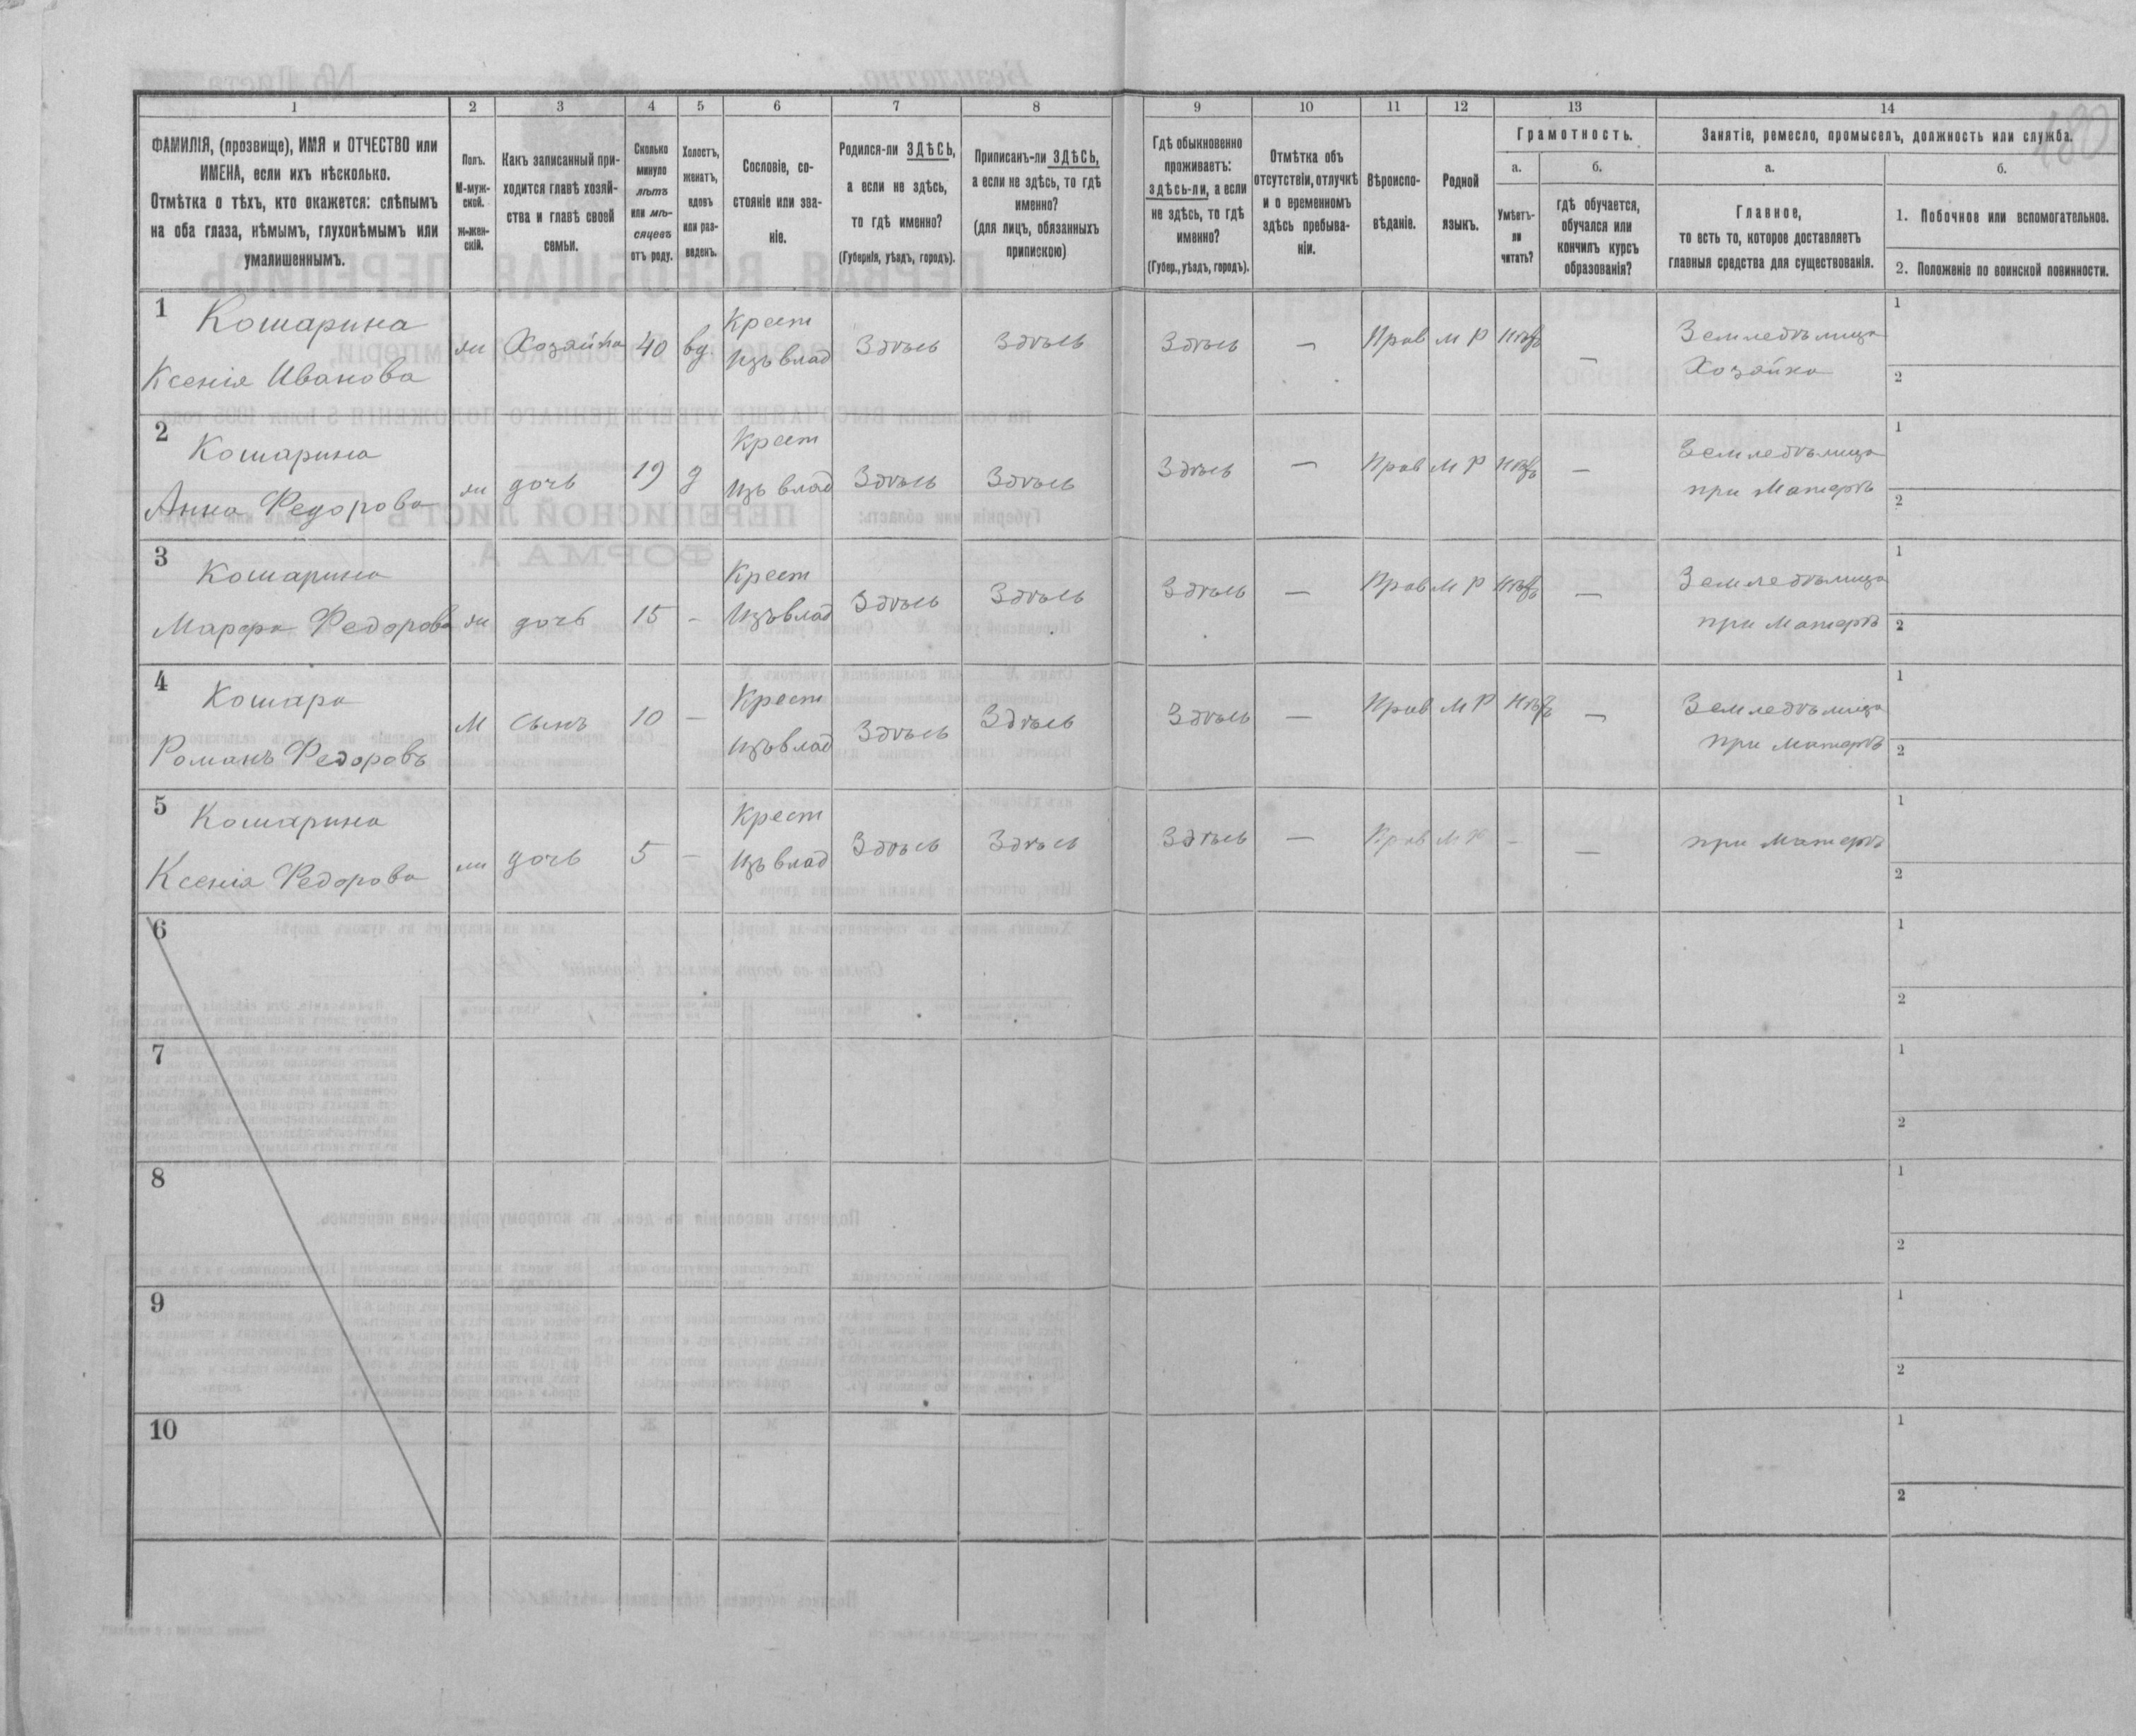 1 2 3 4 5 6 7 8 9 10 11 12 13 14
ФАМИЛІЯ, (прозвище), ИМЯ и ОТЧЕСТВО или
ИМЕНА, если ихъ нѣсколько.
Отмѣтка о тѣхъ, кто окажется: слѣпымъ
на оба глаза, нѣмымъ, глухонѣмымъ или
умалишеннымъ.
Полъ.
М-муж-
ской.
ж-жен-
скій.
Какъ записанный при-
ходится главѣ хозяй-
ства и главѣ своей
семьи.
Сколько
минуло
лѣтъ
или мѣ-
сяцевъ
отъ роду.
Холостъ,
женатъ,
вдовъ
или раз-
веденъ.
Сословіе, со-
стояніе или зва-
ніе.
Родился-ли ЗДѢСЬ,
а если не здѣсь,
то гдѣ именно?
(Губернія, уѣздъ, городъ).
Приписанъ-ли ЗДѢСЬ,
а если не здѣсь, то гдѣ
именно?
(для лицъ, обязанныхъ
припискою)
Гдѣ обыкновенно
проживаетъ:
здѣсь-ли, а если
не здѣсь, то гдѣ
именно?
(Губер., уѣздъ, городъ).
Отмѣтка объ
отсутствіи, отлучкѣ
и о временномъ
здѣсь пребыва-
ніи.
Вѣроиспо-
вѣданіе.
Родной
языкъ.
Грамотность.
а.
Умѣетъ-
ли
читать?
б.
гдѣ обучается,
обучался или
кончилъ курсъ
образованія?
Занятіе, ремесло, промыселъ, должность или служба.
480
а.
Главное,
то есть то, которое доставляетъ
главныя средства для существованія.
б.
1. Побочное или вспомогательное.
2. Положеніе по воинской повинности.
1 Кошарина
Ксенія Иванова
ж Хозяйка 40 вд Крест
изъ влад
Здѣсь Здѣсь Здѣсь — Прав М Р нѣтъ — Земледѣлица
Хозяйка
1
2
2 Кошарина
Анна Федорова
ж дочь 19 д Крест
изъ влад
Здѣсь Здѣсь Здѣсь — Прав М Р нѣтъ — Земледѣлица
при Матерѣ
1
2
3 Кошарина
Марфа Федорова
ж дочь 15 — Крест
Изъ влад
Здѣсь Здѣсь Здѣсь — Прав М Р нѣтъ — Земледѣлица
при Матерѣ
1
2
4 Кошара
Романъ Федоровъ
М сынъ 10 — Крест
изъ влад
Здѣсь Здѣсь Здѣсь — Прав М Р нѣтъ — Земледѣлица
при Матерѣ
1
2
5 Кошарина
Ксенія Федорова
ж дочь 5 — Крест
изъ влад
Здѣсь Здѣсь Здѣсь — Прав М Р — — при Матерѣ
1
2
6
1
2
7
1
2
8
1
2
9
1
2
10
1
2